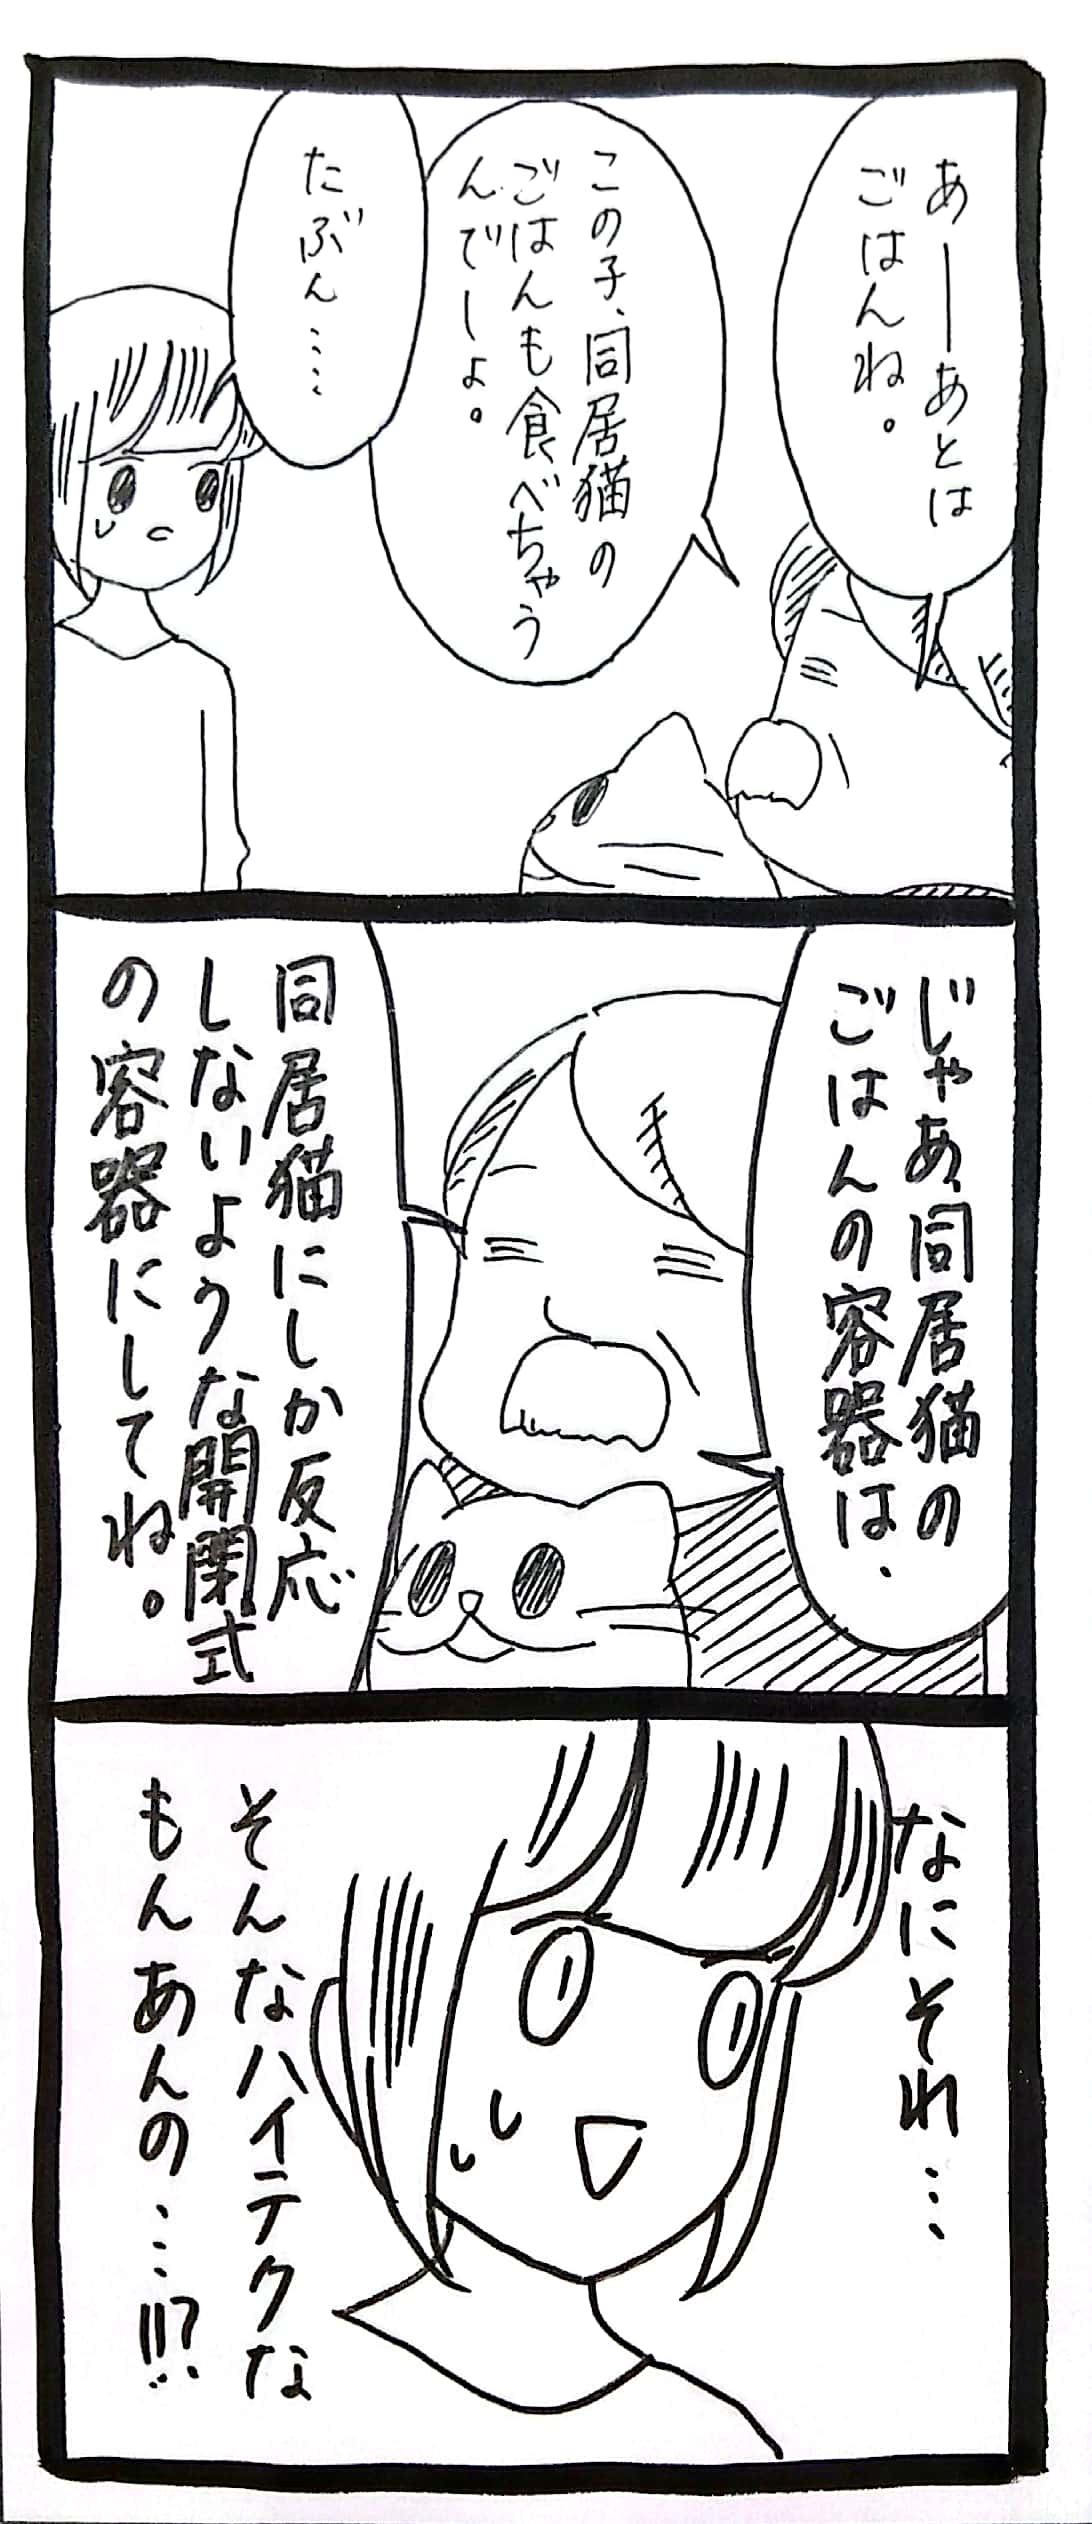 あーーあとは
ごはんね。
この子、同居猫の
ごはんも食べちゃう
んでしょ。
たぶん……
じゃあ、同居猫の
ごはんの容器は、
同居猫にしか反応
しないような開閉式
の容器にしてね。
なにそれ…
そんなハイテクな
もんあんの…!!?